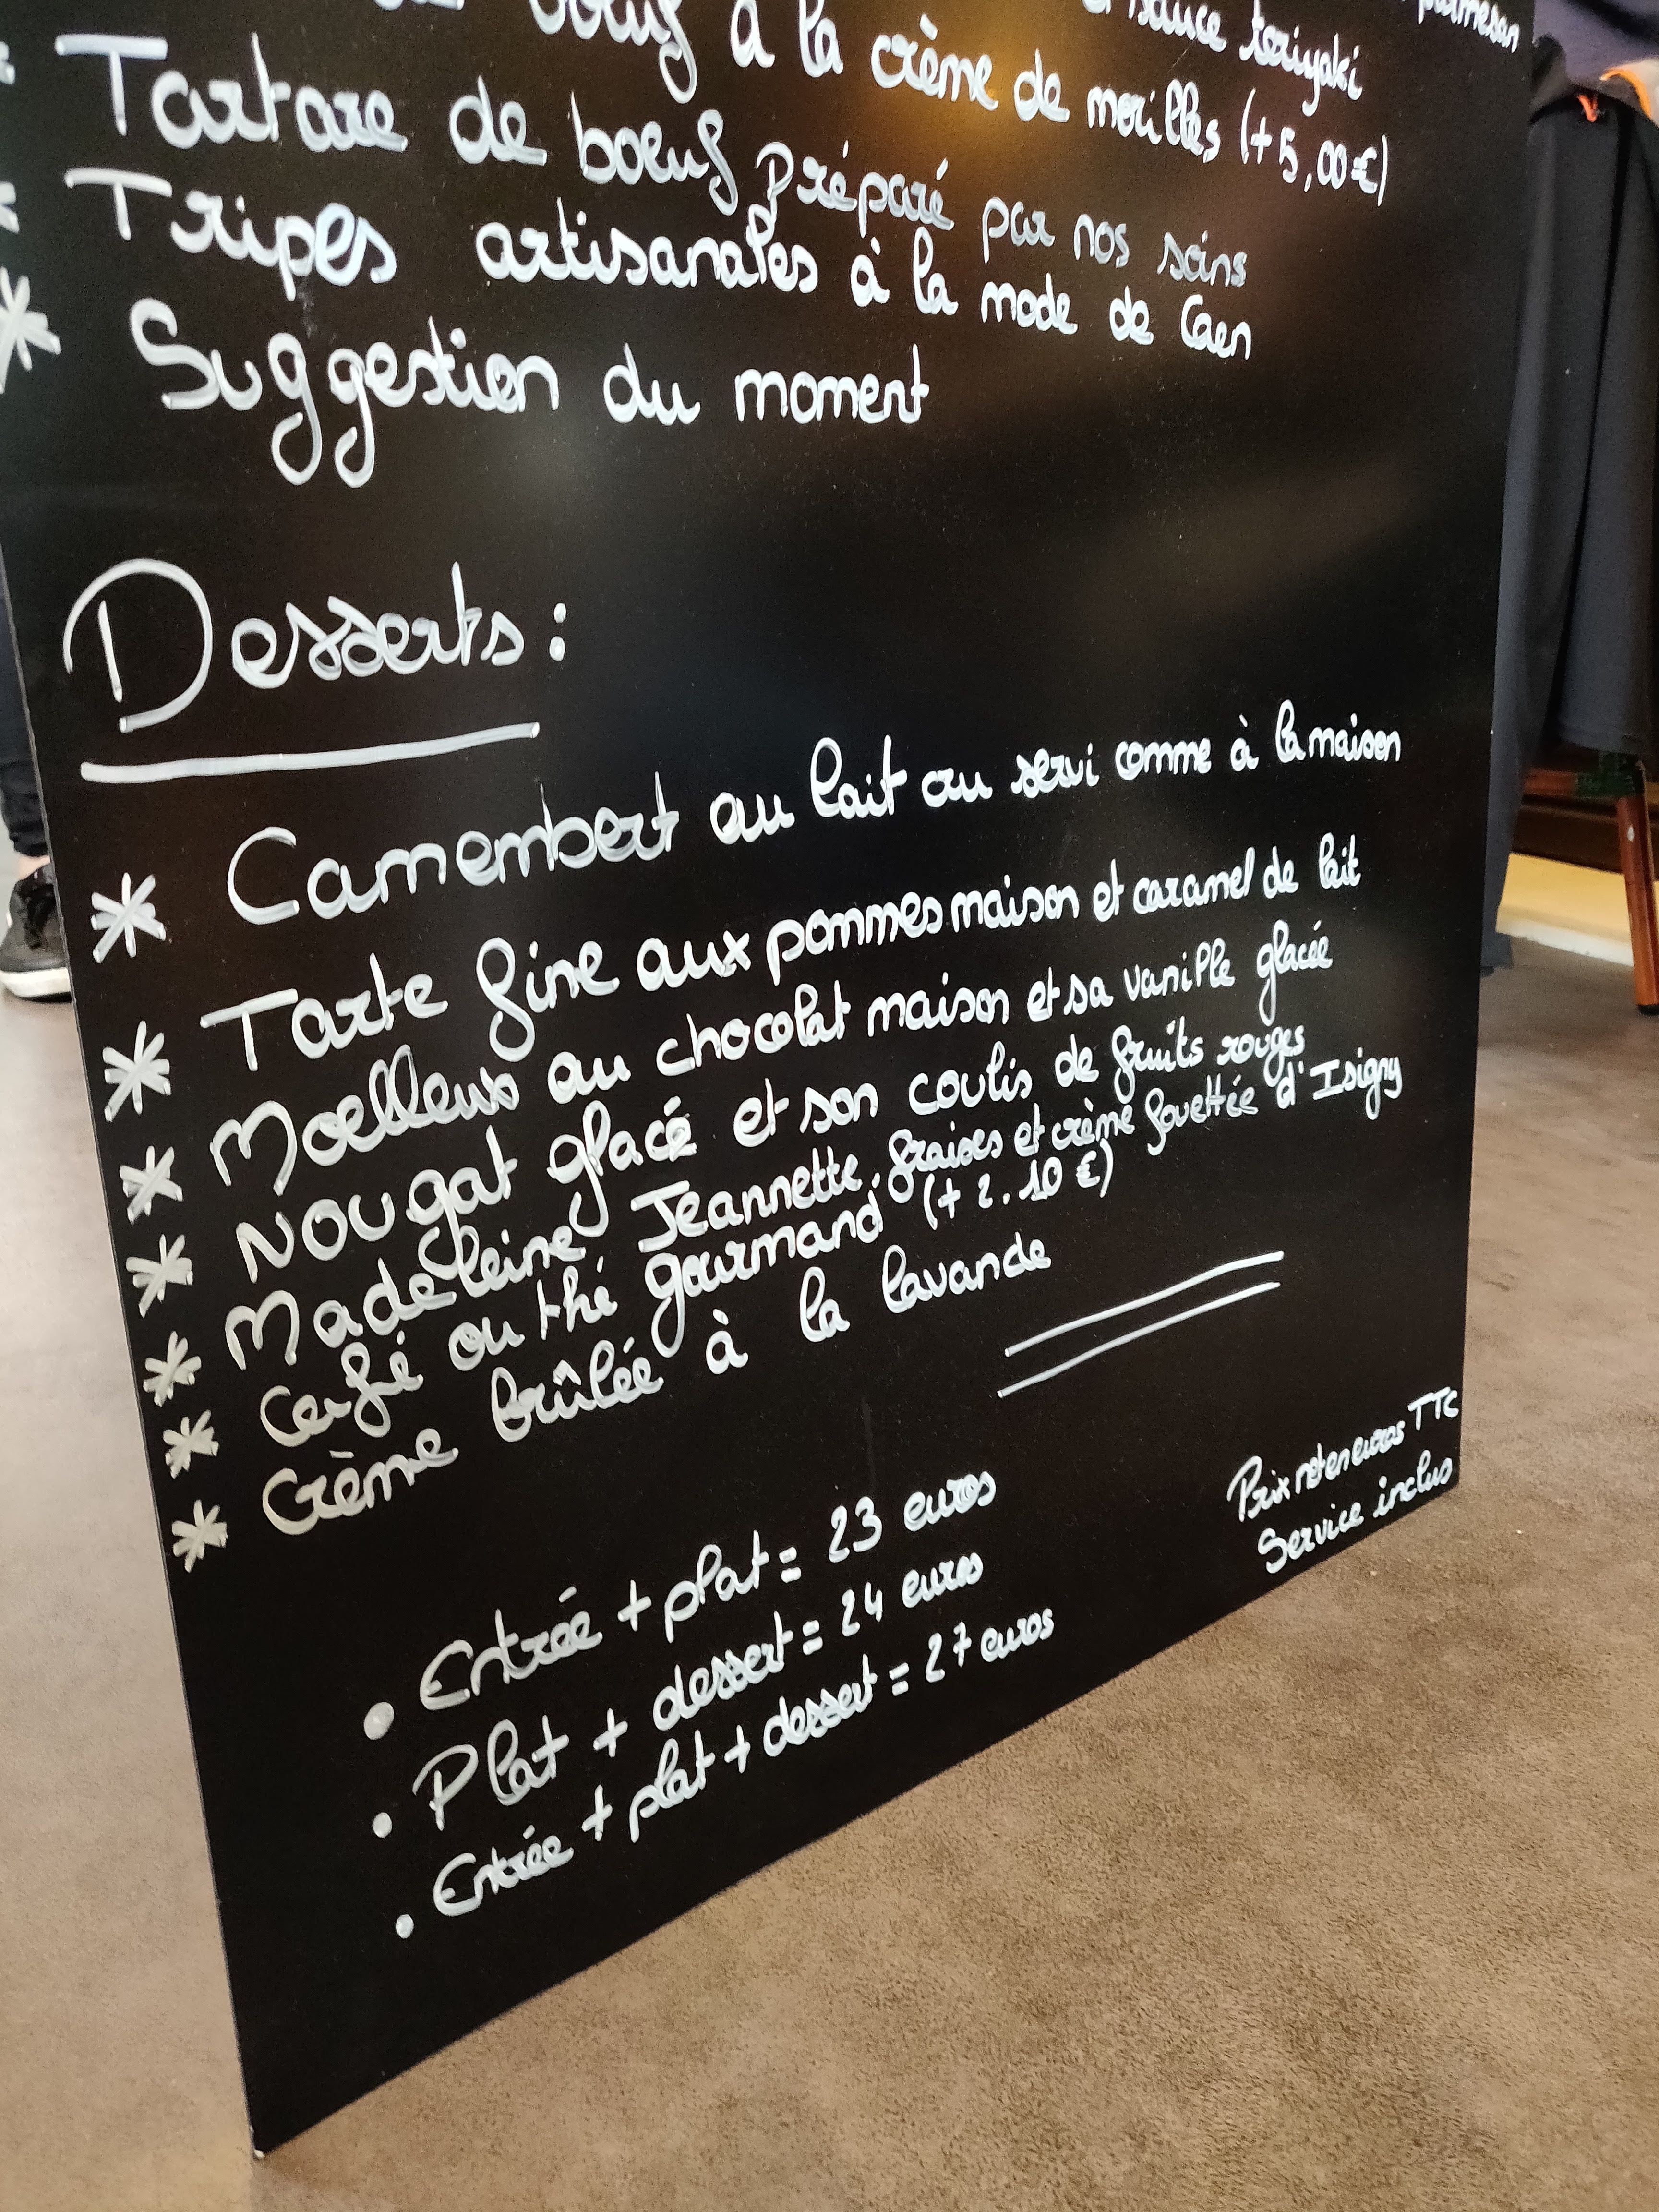 parmesan
sauce teriyaki
boeuf à la crème de morilles (+5,00€)
* Tartare de boeuf préparé par nos soins
* Tripes artisanales à la mode de Caen
* Suggestion du moment
Desserts :
* Camembert au lait cru servi comme à la maison
* Tarte fine aux pommes maison et caramel de lait
* Moelleux au chocolat maison et sa vanille glacée
* Nougat glacé et son coulis de fruits rouges
* Madeleine Jeannette, fraises et crème fouettée d'Isigny
* Café ou thé gourmand (+ 2.10 €)
* Crème brûlée à la lavande
• Entrée + plat = 23 euros
• Plat + dessert = 24 euros
• Entrée + plat + dessert = 27 euros
Prix net en euros TTC
Service inclus